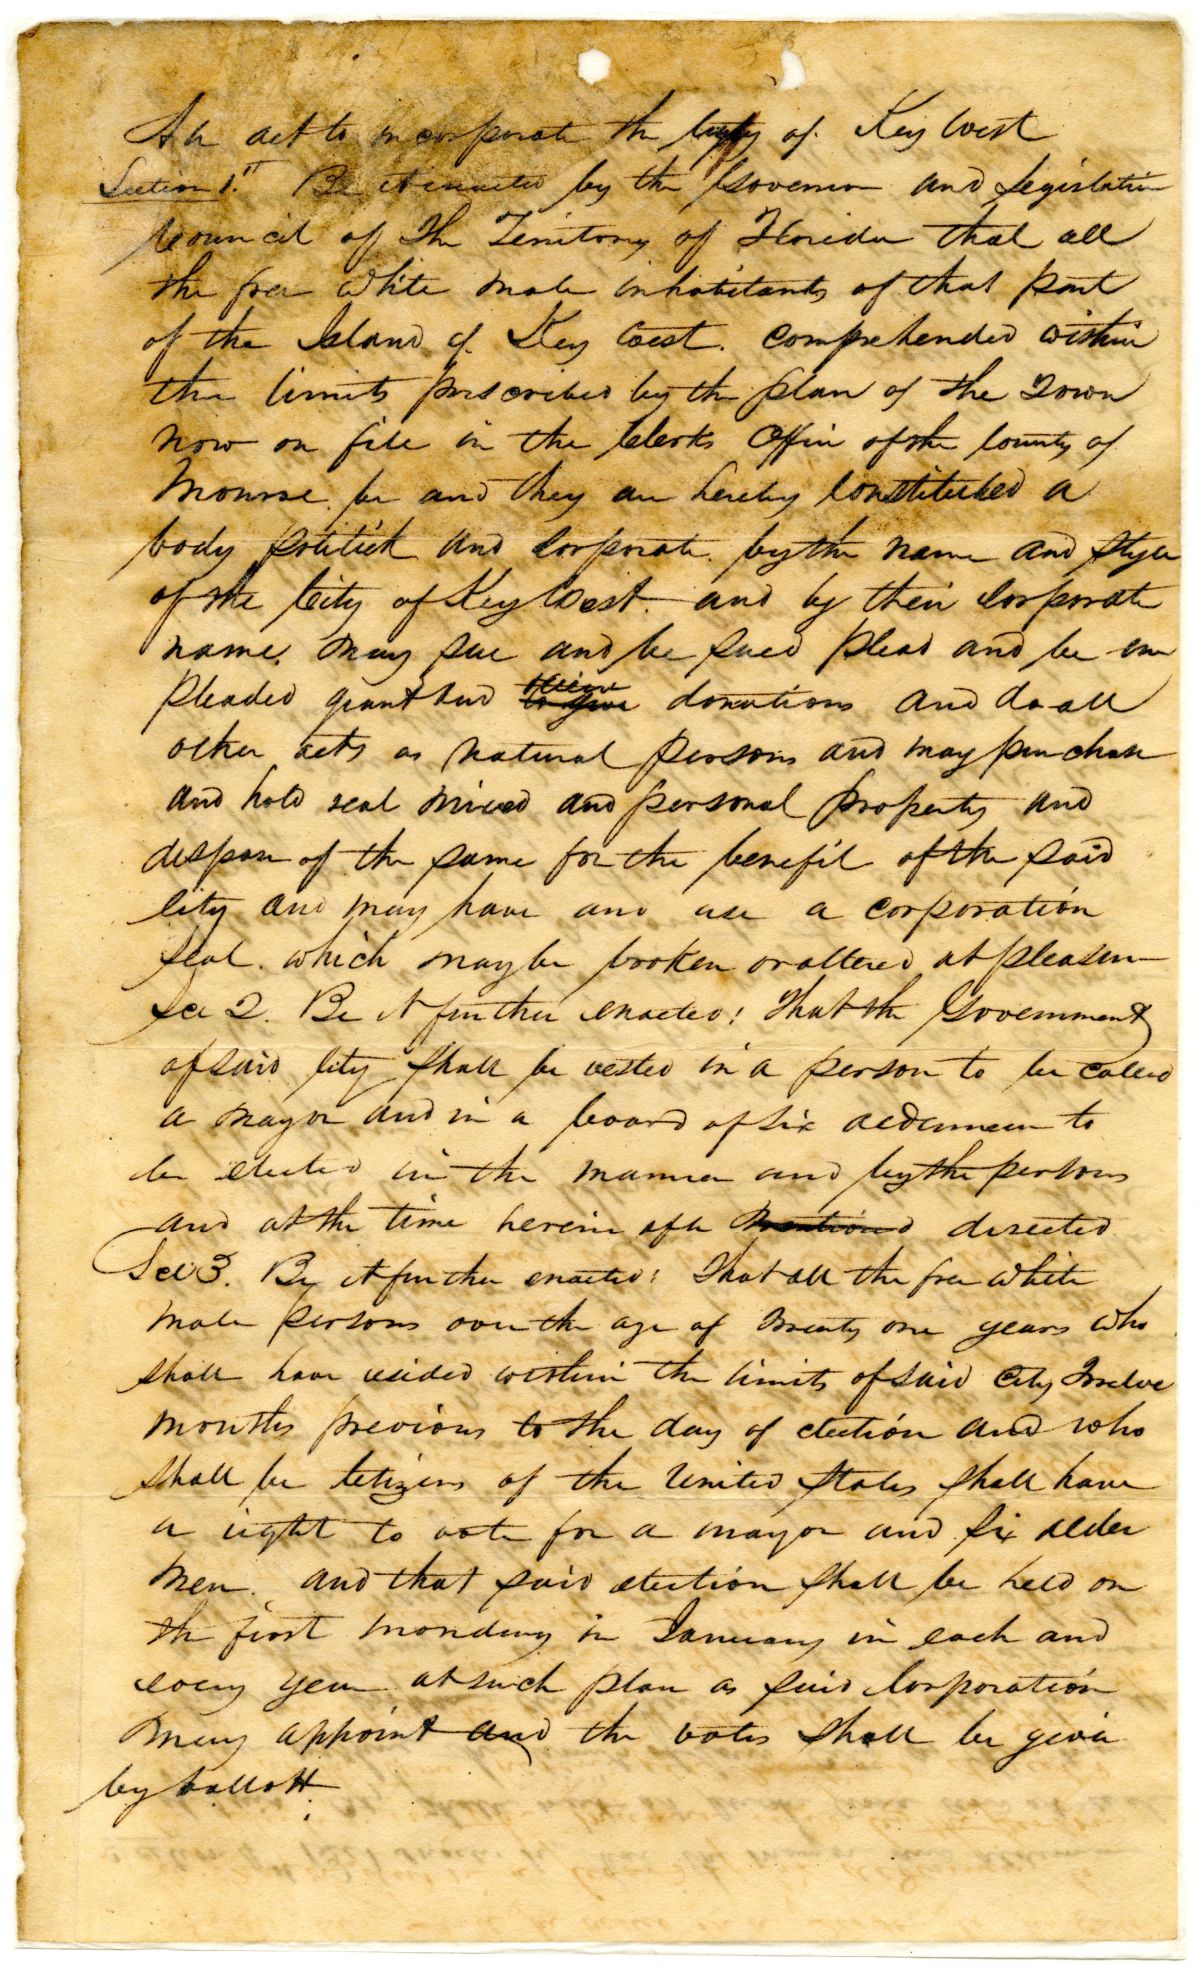 An act to incorporate the City of Key West
Section 1.st Be it enacted by the Governor and Legislative
Council of The Territory of Florida that all
the free white male inhabitants of that part
of the Island of Key West. comprehended within
the limits prescribed by the plan of the Town
now on file in the Clerks Office of the County of
Monroe be and they are hereby constituted a
body politick and corporate by the name and style
of the City of Key West. and by their corporate
name. may sue and be sued plead and be im
pleaded grant and donations and do all
other acts as natural persons and may purchase
and hold real mixed and personal property and
dispose of the same for the benefit of the said
City and may have and use a corporation
seal. which may be broken or altered at pleasure
Sec 2. Be it further enacted: That the Government
of said City shall be vested in a person to be called
a mayor and in a board of six aldermen to
be elected in the manner and by the persons
and at the time herein after mentioned directed
Sec 3. By it further enacted: That all the free white
male persons over the age of twenty one years who
shall have resided within the limits of said City Twelve
months previous to the day of election and who
shall be Citizens of the United States shall have
a right to vote for a mayor and six alder
men. and that said election shall be held on
the first monday in January in each and
every year at such place as said Corporation
may appoint and the votes shall be given
by ballott.